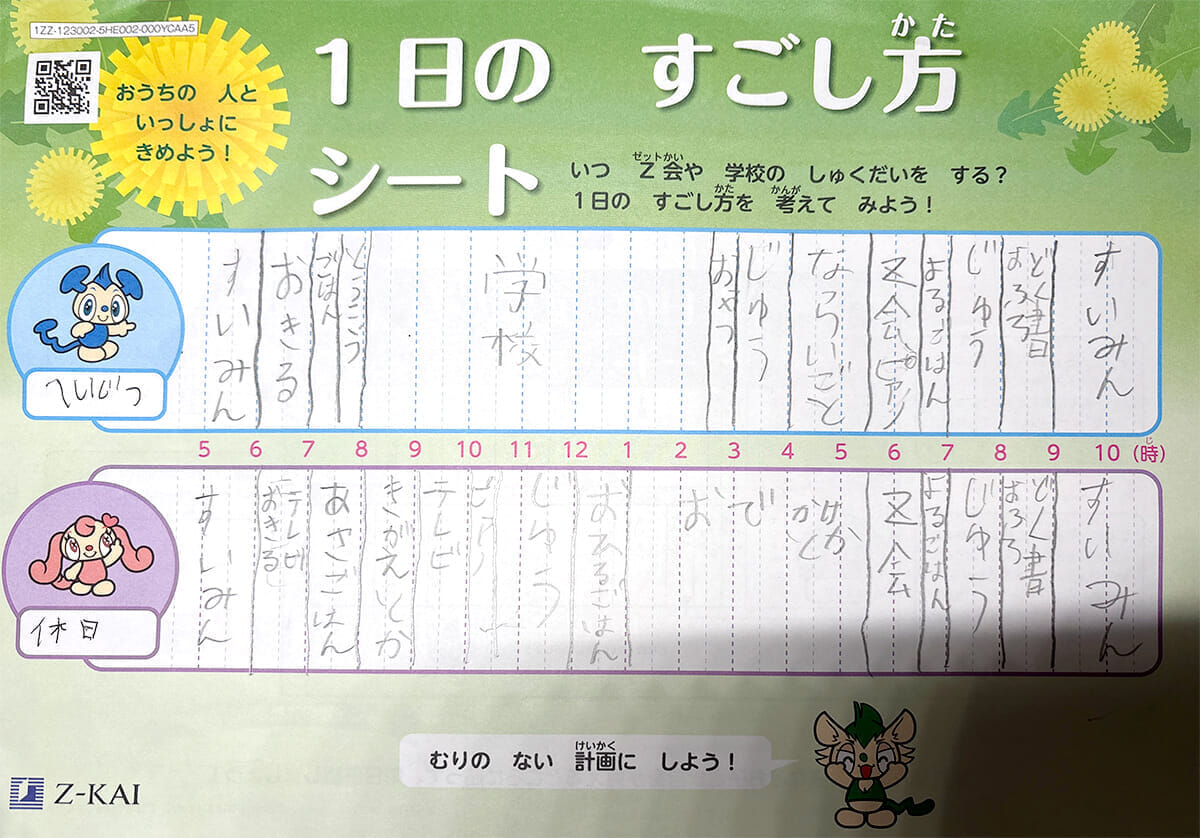 1ZZ-123002-5HE002-000YCAA5
おうちの 人と
いっしょに
きめよう！
かた
1日の すごし方
シート
ゼットかい
いつ Z会や 学校の しゅくだいを する？
かた かんが
1日の すごし方を 考えて みよう！
へいじつ
すいみん
おきる
ごはん
とうこう
学校
おやつ
じゆう
ならいごと
Z会ピアノ
か
よるごはん
じゆう
おふろ
どく書
すいみん
5 6 7 8 9 10 11 12 1 2 3 4 5 6 7 8 9 10 (時)
じ
休日
すいみん
おきる
テレビ
あさごはん
きがえいとか
テレビ
ピアノ
じゆう
おひるごはん
おでかけ
とか
Z会
よるごはん
じゆう
おふろ
どく書
すいみん
けいかく
むりの ない 計画に しよう！
Z-KAI